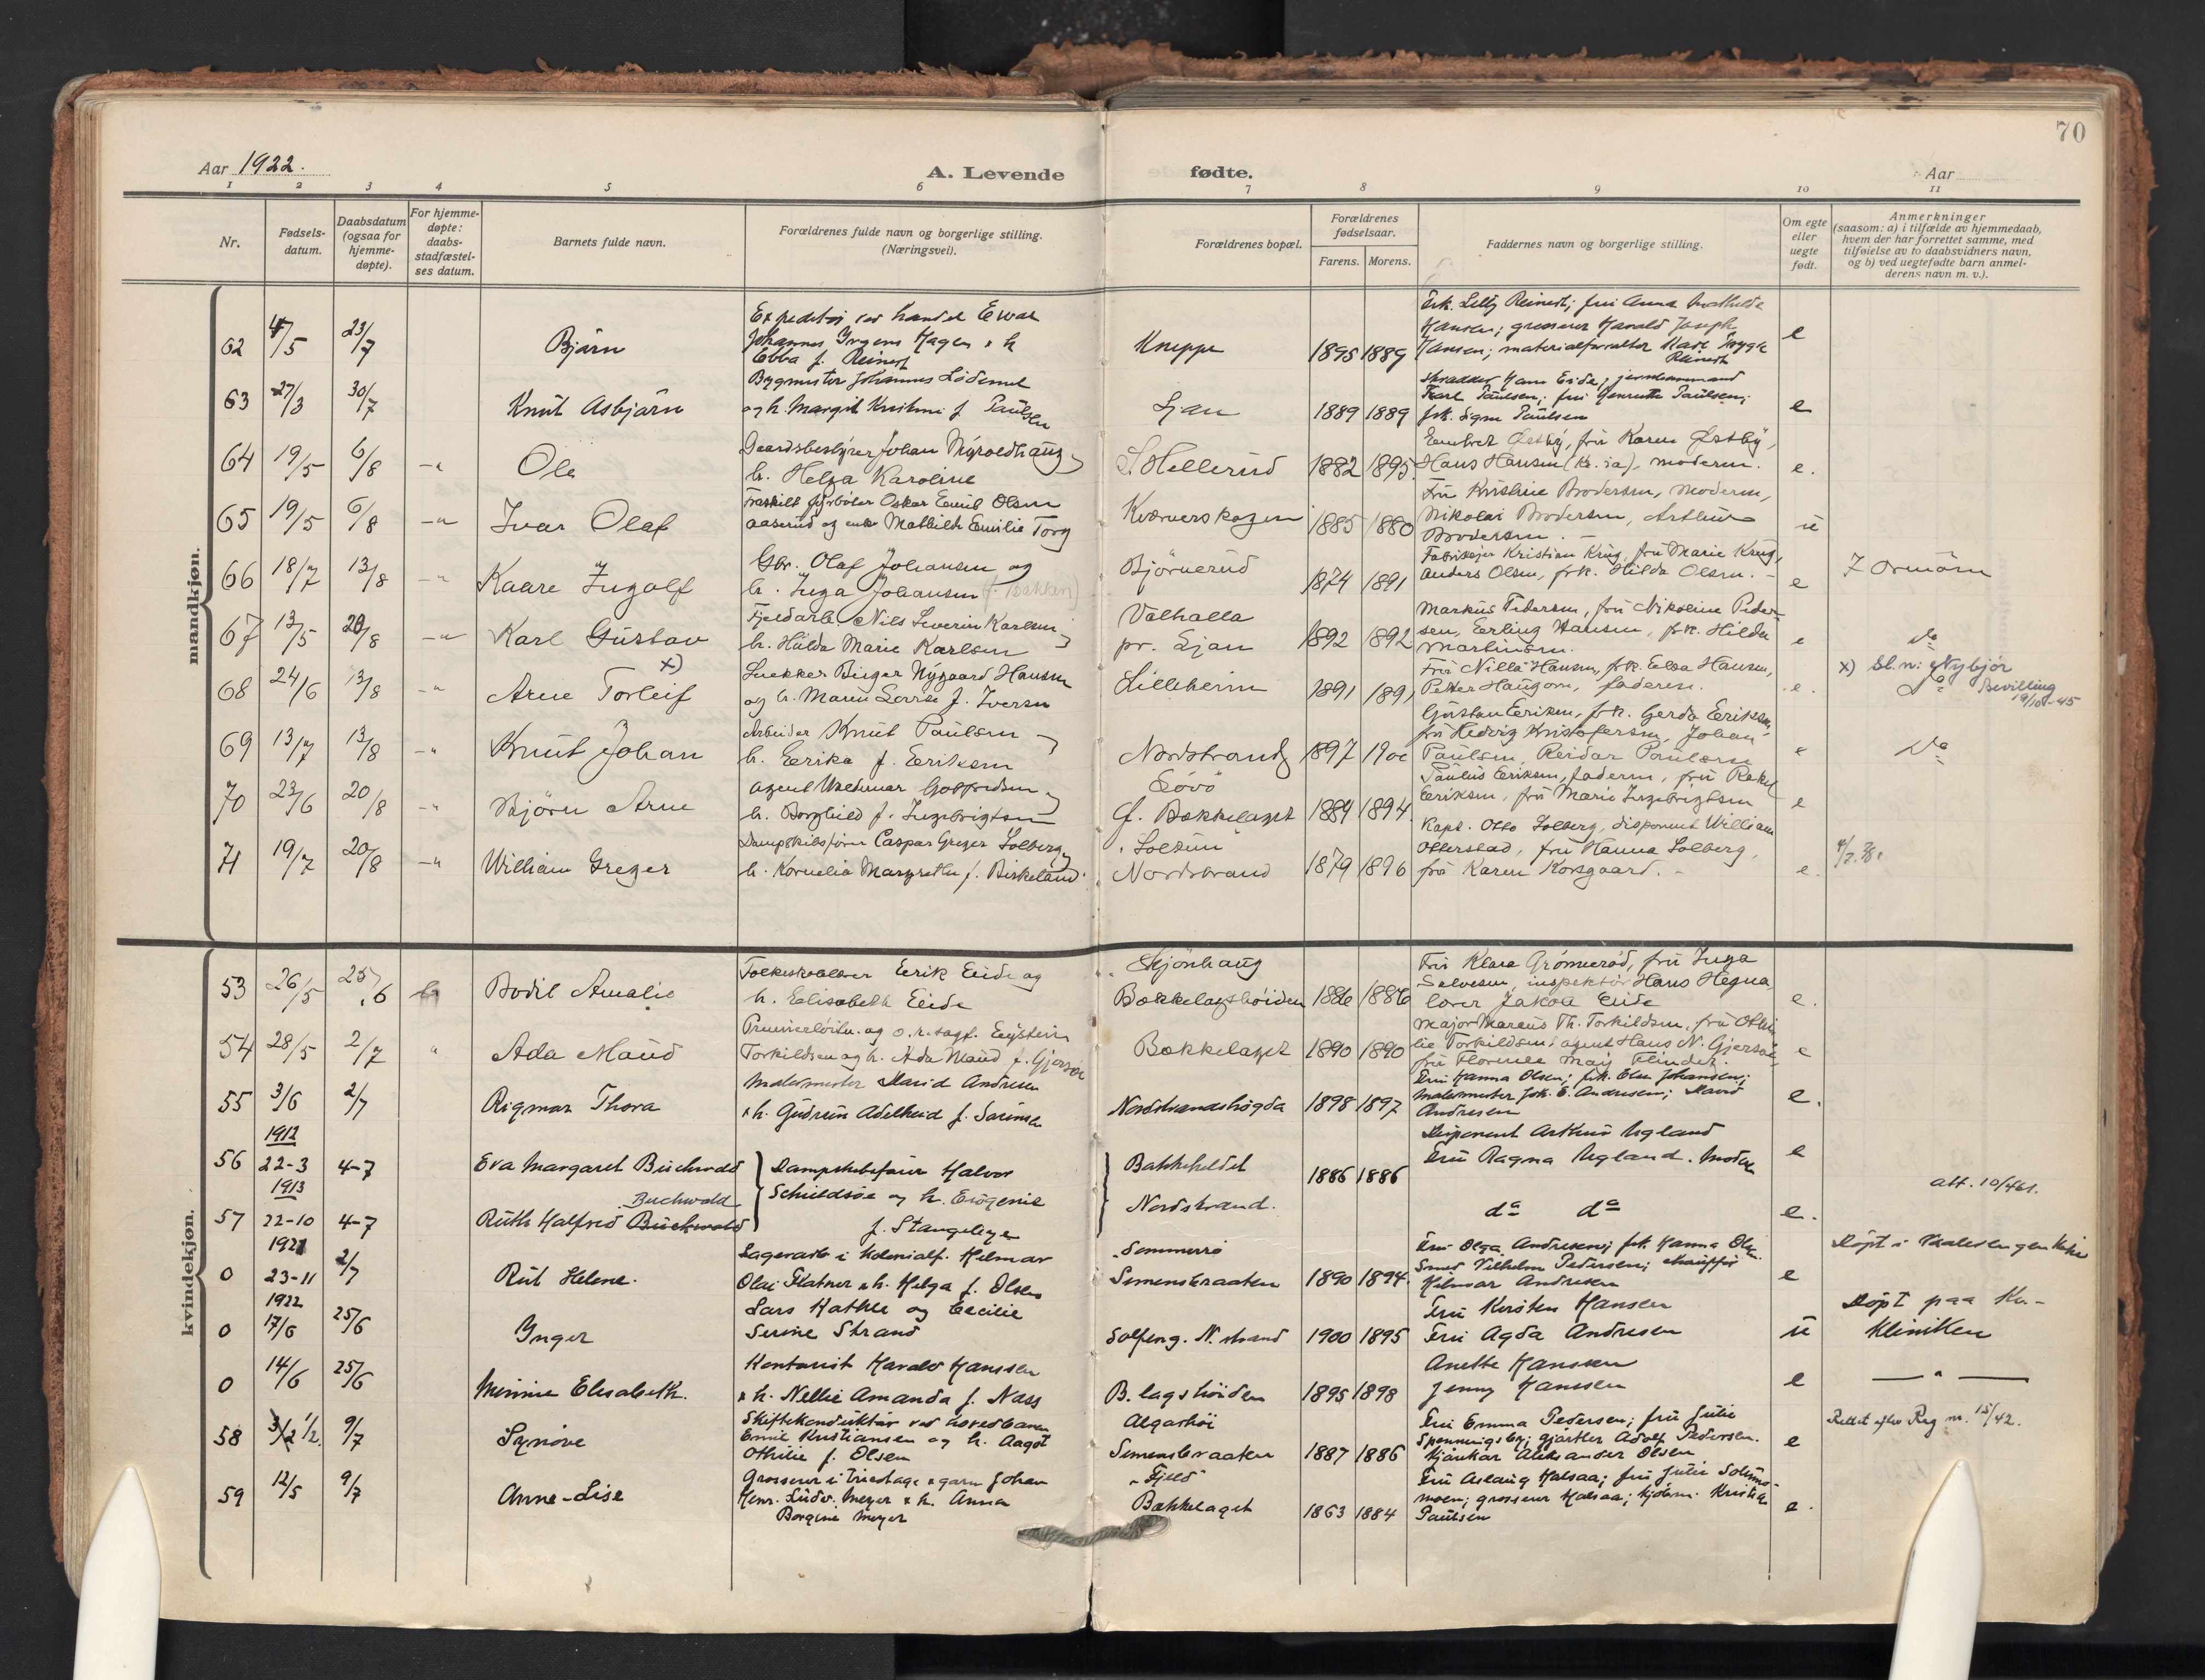 70
Aar 1922.
A. Levende fødte.
Aar
1 2 3 4 5 6 7 8 9 10 11
Nr.
Fødsels-
datum.
Daabsdatum
(ogsaa for
hjemme-
døpte).
For hjemme-
døpte:
daabs-
stadfæstel-
ses datum.
Barnets fulde navn.
Forældrenes fulde navn og borgerlige stilling.
(Næringsvei).
Forældrenes bopæl.
Forældrenes
fødselsaar.
Farens. Morens.
Faddernes navn og borgerlige stilling.
Om egte
eller
uegte
født.
Anmerkninger
(saasom: a) i tilfælde av hjemmedaab,
hvem der har forrettet samme, med
tilføielse av to daabsvidners navn,
og b) ved uegtefødte barn anmel-
derens navn m. v.).
mandkjøn.
62 4/5 23/7 Bjørn
Johannes Hagen & h
Ebba f. Reinert
Kneppe 1895 1889
Frk. Lilly Reinert; fru Anna Mathilde
Hansen; grosserer Harald Joseph
Hansen; materialforvalter
Reinert
e
63 27/3 30/7 Knut Asbjørn
Bygmester Johannes Lødemel
og h. Margit f. Paulsen
Ljan 1889 1889
Karl Paulsen; fru Henriette Paulsen;
frk. Signe Paulsen
e
64 19/5 6/8 -"- Ole
Gaardsbestyrer Johan
h. Helga Karoline
S. Hellerud 1882 1895
Østby, fru Karen Østby,
Hans Hansen (Kr.ia), moderen.
e.
65 19/5 6/8 -"- Ivar Olaf
Fraskilt fyrbøter Oskar Emil Olsen
Aaserud og enke Mathilde Emilie Torg
1885 1880
Fru Kristine Brodersen, moderen,
Nikolai Brodersen, Arthur
Brodersen. -
u
66 18/7 13/8 -"- Kaare Ingolf
Gbr. Olaf Johansen og
h. Inga Johansen (f. Bakken)
Bjørnerud 1874 1891
Fabrikeier Kristian Krug, fru Marie Krug,
Anders Olsen, frk. Hilda Olsen. -
e
I Ormøen
67 13/5 20/8 -"- Karl Gustav
Fjeldarb. Nils Severin Karlsen
h. Hulda Marie Karlsen
Valhalla
pr. Ljan 1892 1892
Markus Pedersen, fru Nikoline Peder-
sen, Erling Hansen, frk. Hilda
Martinsen.
e
do
68 24/6 13/8 -" Arne Torleif x)
Snekker Birger Nygaard Hansen
og h. Maren Lovise f. Iversen
Lilleheim 1891 1891
Fru Nilla Hansen, frk. Elsa Hansen,
Petter Haugom, faderen.
e.
x) Sl.n: Nybjör
do Bevilling
19/10-45
69 13/7 13/8 -"- Knut Johan
Arbeider Knut Paulsen
h. Erika f. Eriksen
Nordstrand 1897 1900
Gustav Eriksen, frk. Gerda Eriksen,
fru Hedvig Kristofersen, Johan
Paulsen, Reidar Paulsen
e
do
70 23/6 20/8 -"- Bjørn Arne
Agent Valdemar Gotfredsen
h. Borghild f. Ingebrigtsen
G. Bækkelaget 1884 1894
Paulus Eriksen, faderen, fru Rakel
Eriksen, fru Marie Ingebrigtsen
e
71 19/7 20/8 -"- William Greger
Dampskibsfører Caspar Greger Solberg
h. Kornelia Margrethe f. Birkeland.
Soltun
Nordstrand 1879 1896
Kapt. Otto Solberg, disponent William
Otterstad, fru Hanna Solberg,
fru Karen Korsgaard. -
e.
kvindekjøn.
53 26/5 25/6 Bodil Amalie
Folkeskolelærer Erik Eide og
h. Elisabeth Eide
Skjønhaug
Bækkelagshøiden 1886 1886
Fru Klara Grønnerød, fru Inga
Salvesen, inspektør Hans Hegna
lærer Jakob Eide
e.
54 28/5 2/7 " Ada Maud
Premierløitn. og o.r.sagf. Eystein
Torkildsen og h. Ada Maud f. Gjersøe
Bækkelaget 1890 1890
Major Marcus Th. Torkildsen, fru Othi-
lie Torkildsen; agent Hans N. Gjersøe,
fru Florence May Flinder.
e
55 3/6 2/7 Rigmor Thora
Malermester David Andresen
& h. Gudrun Adelheid f.
Nordstrandshøgda 1898 1897
Fru Hanna Olsen; frk. Else Johansen;
Malermester Joh. E. Andresen; David
Andresen
e.
56 1912 22-3 4-7 Eva Margaret Buchwald
Dampskibsfører Halvor
Schieldsøe og h. Eugenie
f. Stangebye
Bakkeheldet
Nordstrand.
1886 1886
Disponent Arthur Ugland
Fru Ragna Ugland. Moder
e
57 1913 22-10 4-7 Ruth Halfred Buchwald
Buchwald
do do
e.
att. 10/461.
0 1921 23-11 2/7 Rut Helene.
Lagerarb i kolonialf. Helmar
Olai Flatner & h. Helga f. Olsen
Sommerro
Simensbraaten 1890 1894.
Fru Olga Andresen; frk. Hanna Olsen.
Smed Vilhelm Pedersen; chauffør
Hilmar Andresen
e
Døpt i Vaalerengen Kirke
0 1922 17/6 25/6 Inger
Lars Hatlle og Cecilie
Serine Strand
Solfeng. N. strand 1900 1895
Fru Kirsten Hansen
Fru Agda Andresen
u
Døpt paa Kv.-
Kliniken
0 14/6 25/6 Minnie Elisabeth.
Kontorist Harald Hanssen
& h. Nellie Amanda f. Næss
B. lagshøiden 1895 1898
Anette Hanssen
Jenny Hanssen
e
— " —
58 3/2 1/2. 9/7 Synøve
Skiftekonduktør ved hovedbanen
Emil Kristiansen og h. Aagot
Othilie f. Olsen
Algarhøi
Simensbraaten 1887 1886
Fru Emma Pedersen; fru Julie
Spenningsby; gjørtler Adolf Pedersen.
Aleksander Olsen
e
Rettet efter Reg nr. 15/42.
59 12/5 9/7 Anne-Lise
Grosserer i tricotage & garn Johan
Henr. Ludv. Meyer & h. Anna
Borgine Meyer
"Fjeld"
Bækkelaget 1863 1884
Fru Aslaug Halsaa; fru Julie
moen; grosserer Halsaa; Kristian
Paulsen
e.